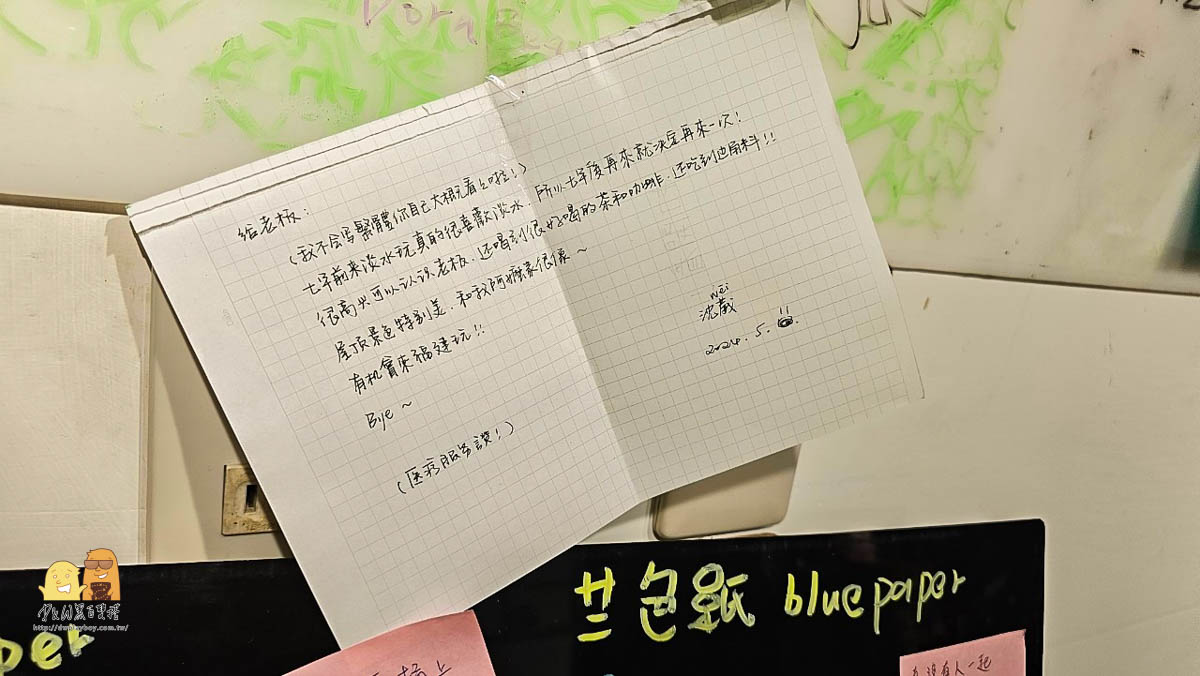 给老板：
（我不会写繁體你自己大概看之啦！）
七年前来淡水玩真的很喜歡淡水，所以七年後再來就決定再來一次！
很高兴可以认识老板，还喝到很好喝的茶和咖啡，还吃到边角料！！
屋顶景色特别美，和我阿嬤家很像～
有机會来福建玩！！
Bye～
（医疗服务談！）
wei
沈葳
2024.5.
per
廿二包紙 bluepaper
有人一起
http://dwplayboy.com.tw/